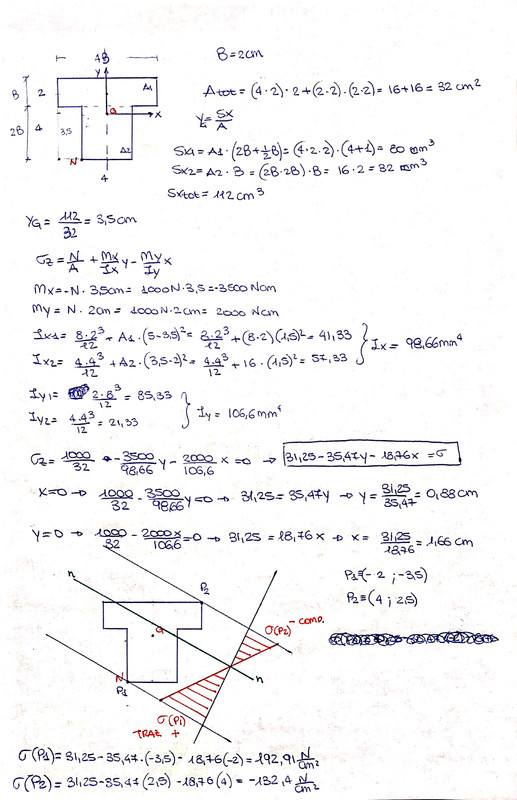 4B
B = 2cm
y
B 2 A1
G x
2B 4 3,5
N A2
4
Atot = (4·2)·2+(2·2)·(2·2) = 16+16 = 32 cm²
YG = Sx/A
Sx1 = A1·(2B+½B) = (4·2·2)·(4+1) = 80 cm³
Sx2 = A2·B = (2B·2B)·B = 16·2 = 32 cm³
Sxtot = 112 cm³
YG = 112/32 = 3,5cm
σz = N/A + Mx/Ix y - My/Iy x
Mx = -N·3,5cm = 1000N·3,5 = -3500 Ncm
My = N·2cm = 1000N·2cm = 2000 Ncm
Ix1 = 8·2³/12 + A1·(5-3,5)² = 8·2³/12 + (8·2)(1,5)² = 41,33
Ix2 = 4·4³/12 + A2·(3,5-2)² = 4·4³/12 + 16·(1,5)² = 57,33
Ix = 98,66mm⁴
Iy1 = 2·8³/12 = 85,33
Iy2 = 4·4³/12 = 21,33
Iy = 106,6mm⁴
σz = 1000/32 - 3500/98,66 y - 2000/106,6 x = 0 → 31,25-35,47y-18,76x = σ
X=0 → 1000/32 - 3500/98,66 y = 0 → 31,25 = 35,47y → y = 31,25/35,47 = 0,88cm
Y=0 → 1000/32 - 2000x/106,6 = 0 → 31,25 = 18,76x → x = 31,25/18,76 = 1,66 cm
P1≡(-2 ; -3,5)
P2≡(4 ; 2,5)
n P2
σ(P2) - comp.
G
N
P1 n
σ(P1)
TRAZ +
σ(P1) = 31,25-35,47·(-3,5)-18,76(-2) = 192,91 N/cm²
σ(P2) = 31,25-35,47(2,5)-18,76(4) = -132,4 N/cm²